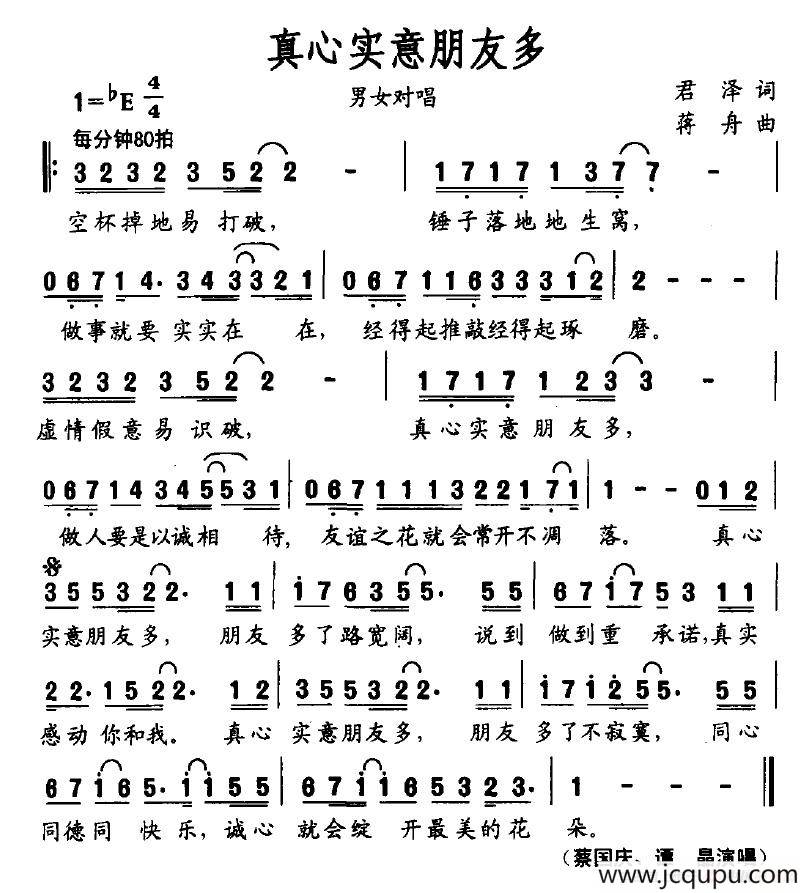 真心实意朋友多
1=♭E 4/4
男女对唱
君 泽 词
蒋 舟 曲
每分钟80拍
3 2 3 2 3 5 2 2 - | 1 7 1 7 1 3 7 7 -
空杯掉地易 打破, 锤子落地地 生 窝,
0 6 7 1 4. 3 4 3 3 3 2 1 | 0 6 7 1 1 6 3 3 3 1 2 | 2 - - -
做事就要 实实在 在, 经得起推敲经得起琢 磨。
3 2 3 2 3 5 2 2 - | 1 7 1 7 1 2 3 3 -
虚情假意易 识破, 真心实意 朋 友 多,
0 6 7 1 4 3 4 5 5 5 3 1 | 0 6 7 1 1 1 3 2 2 1 7 1 | 1 - - 0 1 2
做人要是以诚相 待, 友谊之花就会常开不凋 落。 真心
3 5 5 5 3 2 2. 1 1 | 1 7 6 3 5 5. 5 5 | 6 7 1 7 5 3 1 1
实意朋友多, 朋友 多了路宽阔, 说到 做到重 承诺,真实
2 2. 1 5 2 2. 1 2 | 3 5 5 5 3 2 2. 1 1 | 1 7 1 2 5 5. 5 5
感动 你和我。 真心 实意朋友多, 朋友 多了不寂寞, 同心
6 7 1 6 5. 1 1 5 5 | 6 7 1 1 6 5 3 2 3. 1 -
同德同 快乐, 诚心 就会绽 开最美的花 朵。
(蔡国庆、谭 晶演唱)
www.jcqupu.com